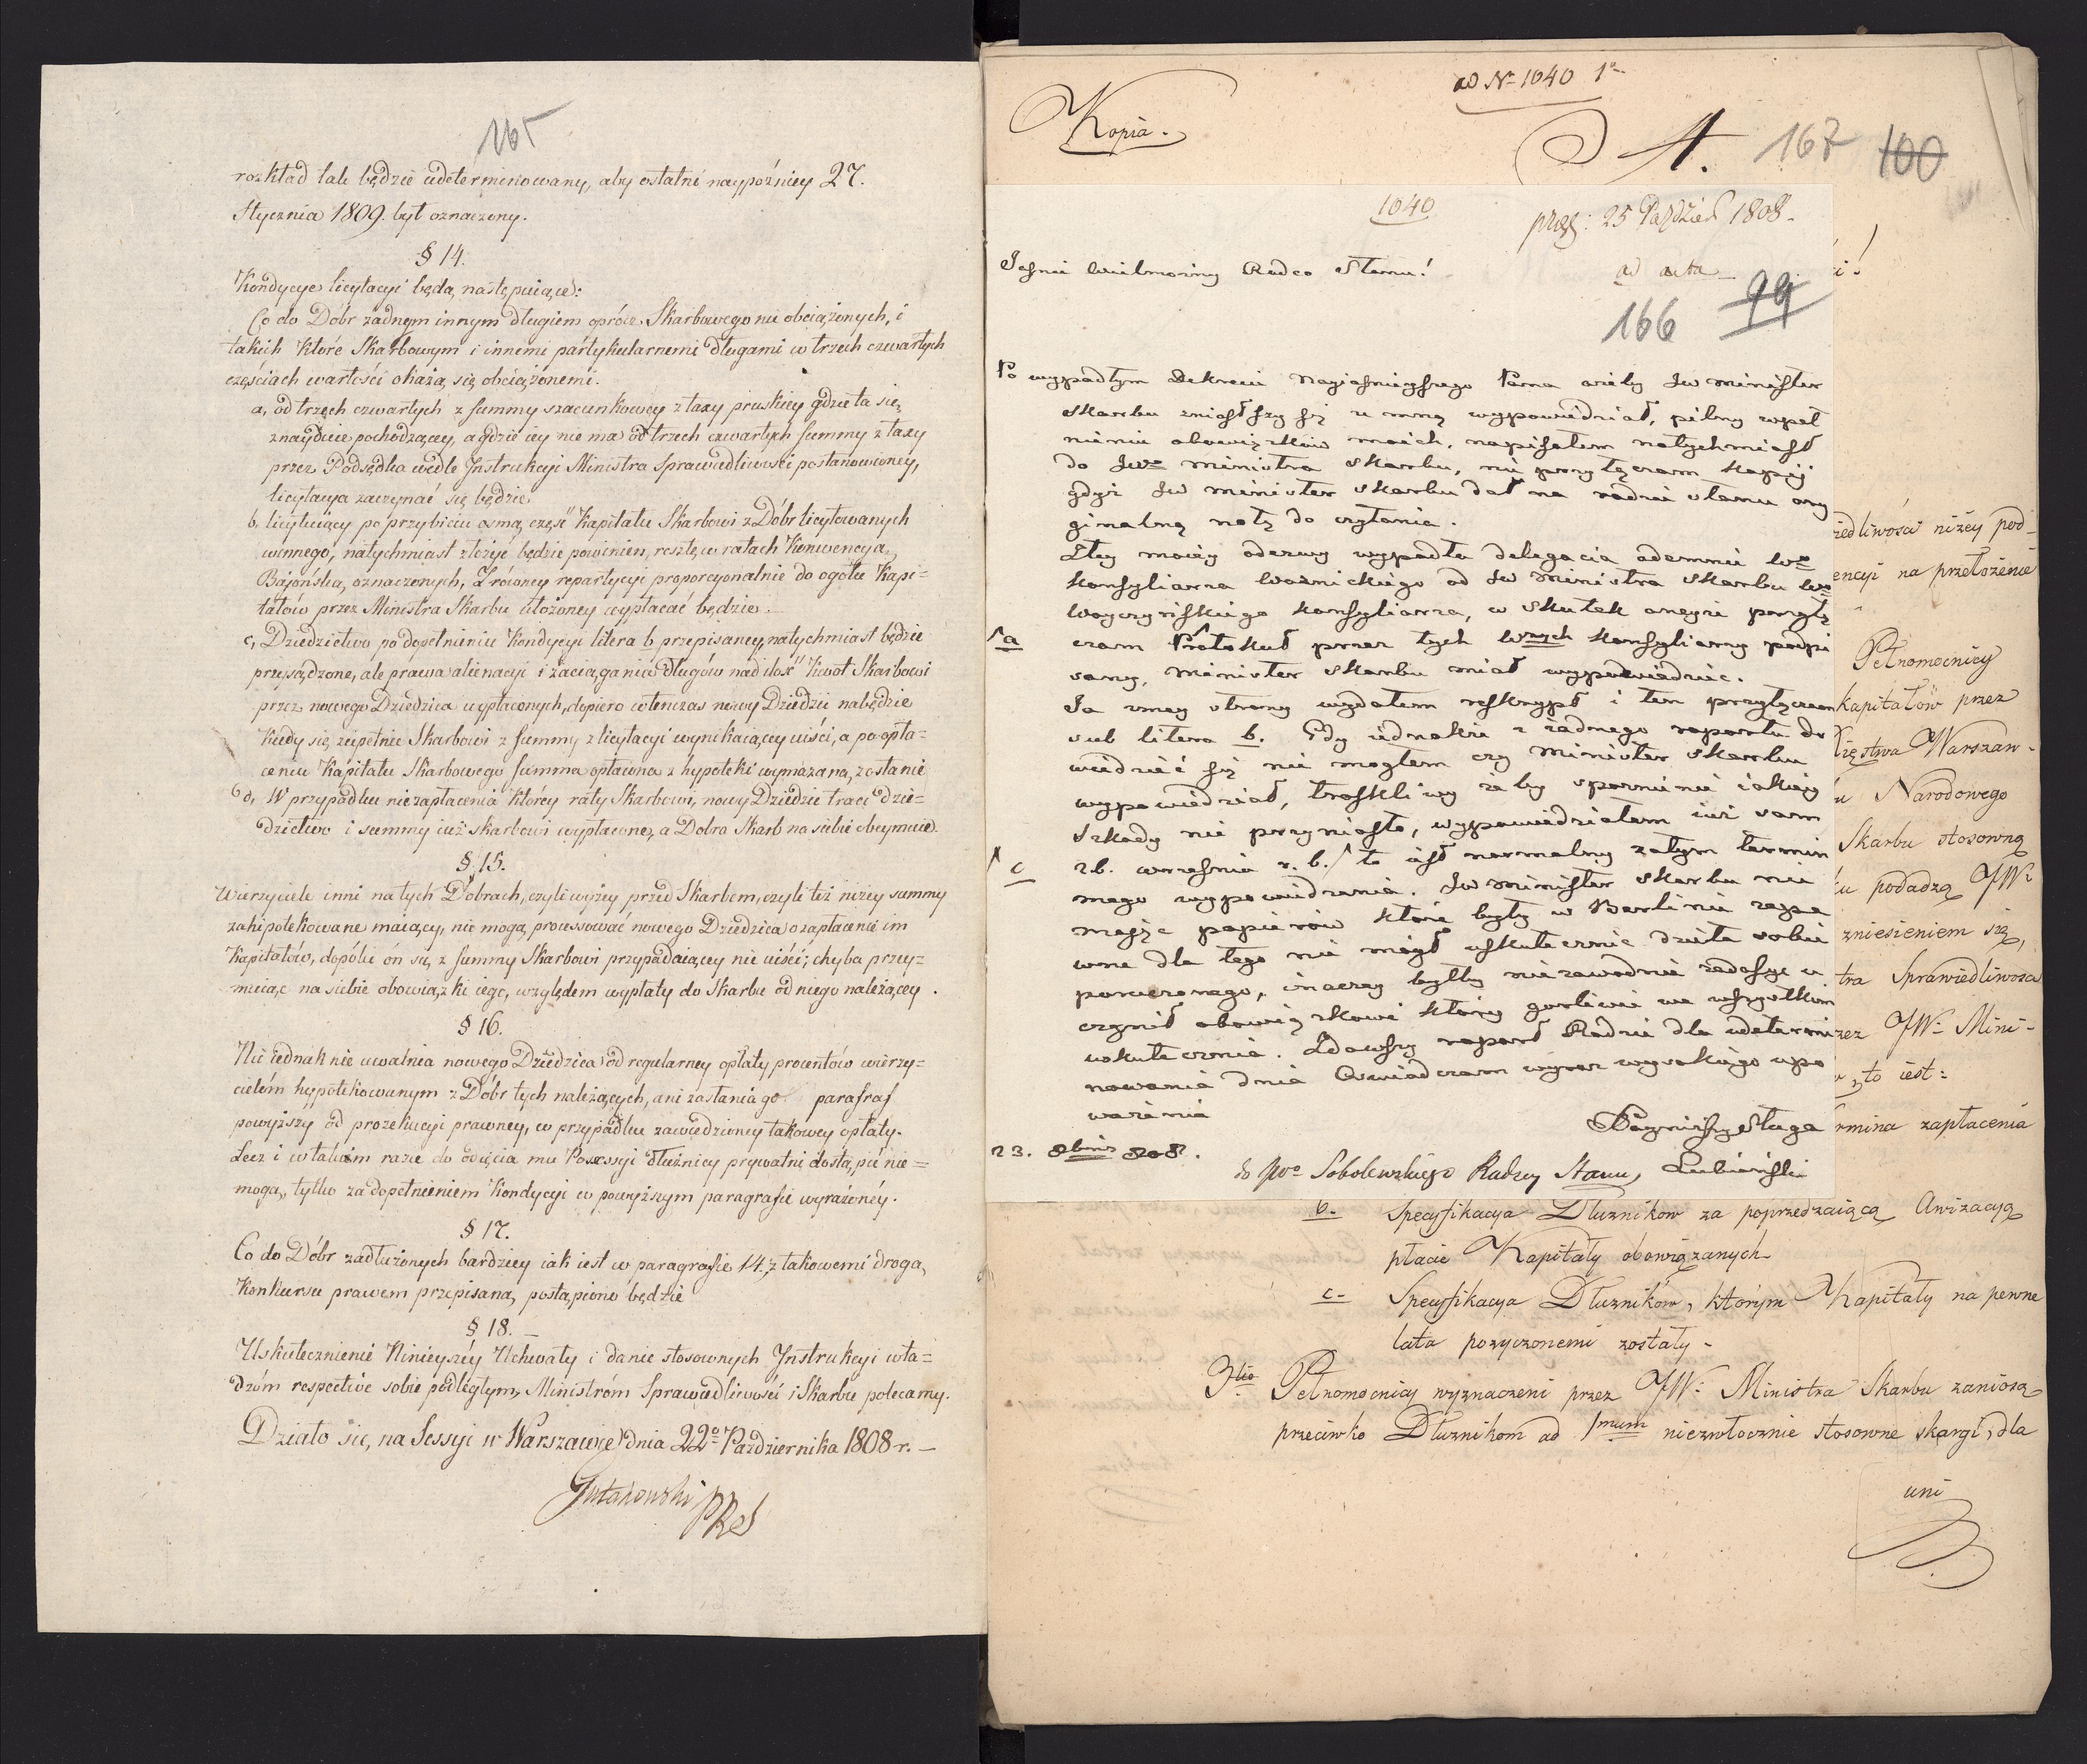 165
rozkład tak będzie udeterminowany, aby ostatni naypóźniey 27.
Stycznia 1809. był oznaczony.
§ 14.
Kondycye licytacyi będą następuiące:
Co do Dóbr żadnym innym długiem oprócz Skarbowego nie obciążonych, i
takich które Skarbowym i innemi partykularnemi długami w trzech czwartych
częściach wartości okażą się obciążonemi.
a, od trzech czwartych z summy szacunkowey z taxy pruskiey gdzie ta się
znayduie pochodzącey, a gdzie iey nie ma od trzech czwartych summy z taxy
przez Podsędka wedle Instrukcyi Ministra Sprawiedliwości postanowioney,
licytacya zaczynać się będzie
b. licytuiący po przybiciu osmą część Kapitału Skarbowi z Dóbr licytowanych
winnego, natychmiast złożyć będzie powinien, resztę w ratach Konwencyą
Bajońską, oznaczonych, z równey repartycyi proporcyonalnie do ogółu Kapi=
tałów przez Ministra Skarbu ułożoney wypłacać będzie. —
c, Dziedzictwo po dopełnieniu Kondycyi litera b przepisaney, natychmiast będzie
przysądzone, ale prawa alienacyi i zaciągania długów nad ilość kwot Skarbowi
przez nowego Dziedzica wypłaconych, dopiero wtenczas nowy Dziedzic nabędzie
kiedy się zupełnie Skarbowi z summy z licytacyi wynikaiącey uiści, a po opła=
ceniu Kapitału Skarbowego summa opłacona z hypoteki wymazana, zostanie
d, W przypadku niezapłacenia którey raty Skarbowi, nowy Dziedzic traci dzie=
dzictwo i summy iuż skarbowi wypłacone, a Dobra Skarb na siebie obeymuie.
§ 15.
Wierzyciele inni na tych Dobrach, czyli wyżey przed Skarbem, czyli też niżey summy
zahipotekowane maiący, nie mogą processować nowego Dziedzica o zapłacenie im
Kapitałów, dopóki ón się z summy Skarbowi przypadaiącey nie uiści; chyba przey=
muiąc na siebie obowiązki iego, względem wypłaty do Skarbu od niego należącey.
§ 16.
Nic iednak nie uwalnia nowego Dziedzica od regularney opłaty procentów wierzy=
cielóm hypotekowanym z Dóbr tych należących, ani zasłania go parafraf
powyższy od prozekucyi prawney, w przypadku zawiedzioney takowey opłaty.
Lecz i w takim razie do ódięcia mu Possessyi dłużnicy prywatni dostąpić nie=
mogą, tylko za dopełnieniem Kondycyi w powyższym paragrafie wyrażonéy.
§ 17.
Co do Dóbr zadłużonych bardziey iak iest w paragrafie 14. z takowemi drogą,
Konkursu prawem przepisaną, postąpiono będzie
§ 18. —
Uskutecznienie Ninieyszéy Uchwały i danie stosownych Instrukcyi wła=
dzóm respective sobie podległym, Ministróm Sprawiedliwości i Skarbu polecamy.
Działo się, na Sessyi w Warszawie dnia 22º Października 1808 r. —
Gutakowski PRes
ad Nº 1040 1º
Kopia.
A. 167 100
1040
prez: 25 Paździer 1808.
Jaśnie Wielmożny Radco Stanu!
ad acta
166 99
Po wypadłym Dekrecie Nayiaśnieyszego Pana ażeby JW Minister
Skarbu zniosłszy się ze mną wypowiedział, pilny wypeł
nienia obowiązków moich, napisałem natychmiast
do JWo Ministra Skarbu, nie przyłączam kopiji
gdyż JW Minister Skarbu dał na radzie stanu ory
ginalną notę do czytania.
Z tey moiey odezwy wypadła delegacia odemnie Wo
Konsyliarza Woźnickiego od JW Ministra Skarbu Wo
Woyczyńskiego Konsyliarza, w skutek oneyże przyłą
a czam Protokuł przez tych Wnych Konsyliarzy podpi
sany, Minister Skarbu miał wypowiedzieć.
Ja z mey strony wydałem reskrypt i ten przyłączam
sub litera b. Gdy iednakże z żadnego raportu do
wiedzieć się nie mogłem czy Minister Skarbu
wypowiedział, troskliwy żeby spóźnienie iakiey
szkody nie przyniosło, wypowiedziałem iuż sam
c 26. września r. b. to iest normalny zatym termin
mego wypowiedzenia. JW Minister Skarbu nie
maiąc papierów które były w Berlinie zape
wne dla tego nie mógł uskutecznić dzieła sobie
poruczonego, inaczey byłby niezawodnie zadosyć u
czynił obowiązkowi który gorliwie we wszystkim
uskutecznia. Zdawszy raport Radzie dla udetermi
nowania dnia Oświadczam wyraz wysokiego upo
ważenia
Nayniższy Sługa
23. 8bris 808. Łubieński
do JWo Sobolewskiego Radcy Stanu,
i!
iedliwości niżey pod-
encyi na przełożenie
Pełnomocnicy
kapitałów przez
Xięstwa Warszaw-
u Narodowego
Skarbu stosowną
u podadzą JWu
zniesieniem się,
tra Sprawiedliwości
rzez JW: Mini-
to iest:
rmina zapłacenia
b. Specyfikacya Dłużników za poprzedzaiącą Awizacyą
płacić Kapitały obowiązanych
c- Specyfikacya Dłużników, którym Kapitały na pewne
lata pozyczonemi zostały -
3tio Pełnomocnicy wyznaczeni przez JW: Ministra Skarbu zaniosą
przeciwko Dłużnikom ad 1mum niezwłocznie stosowne skargi, dla
uni